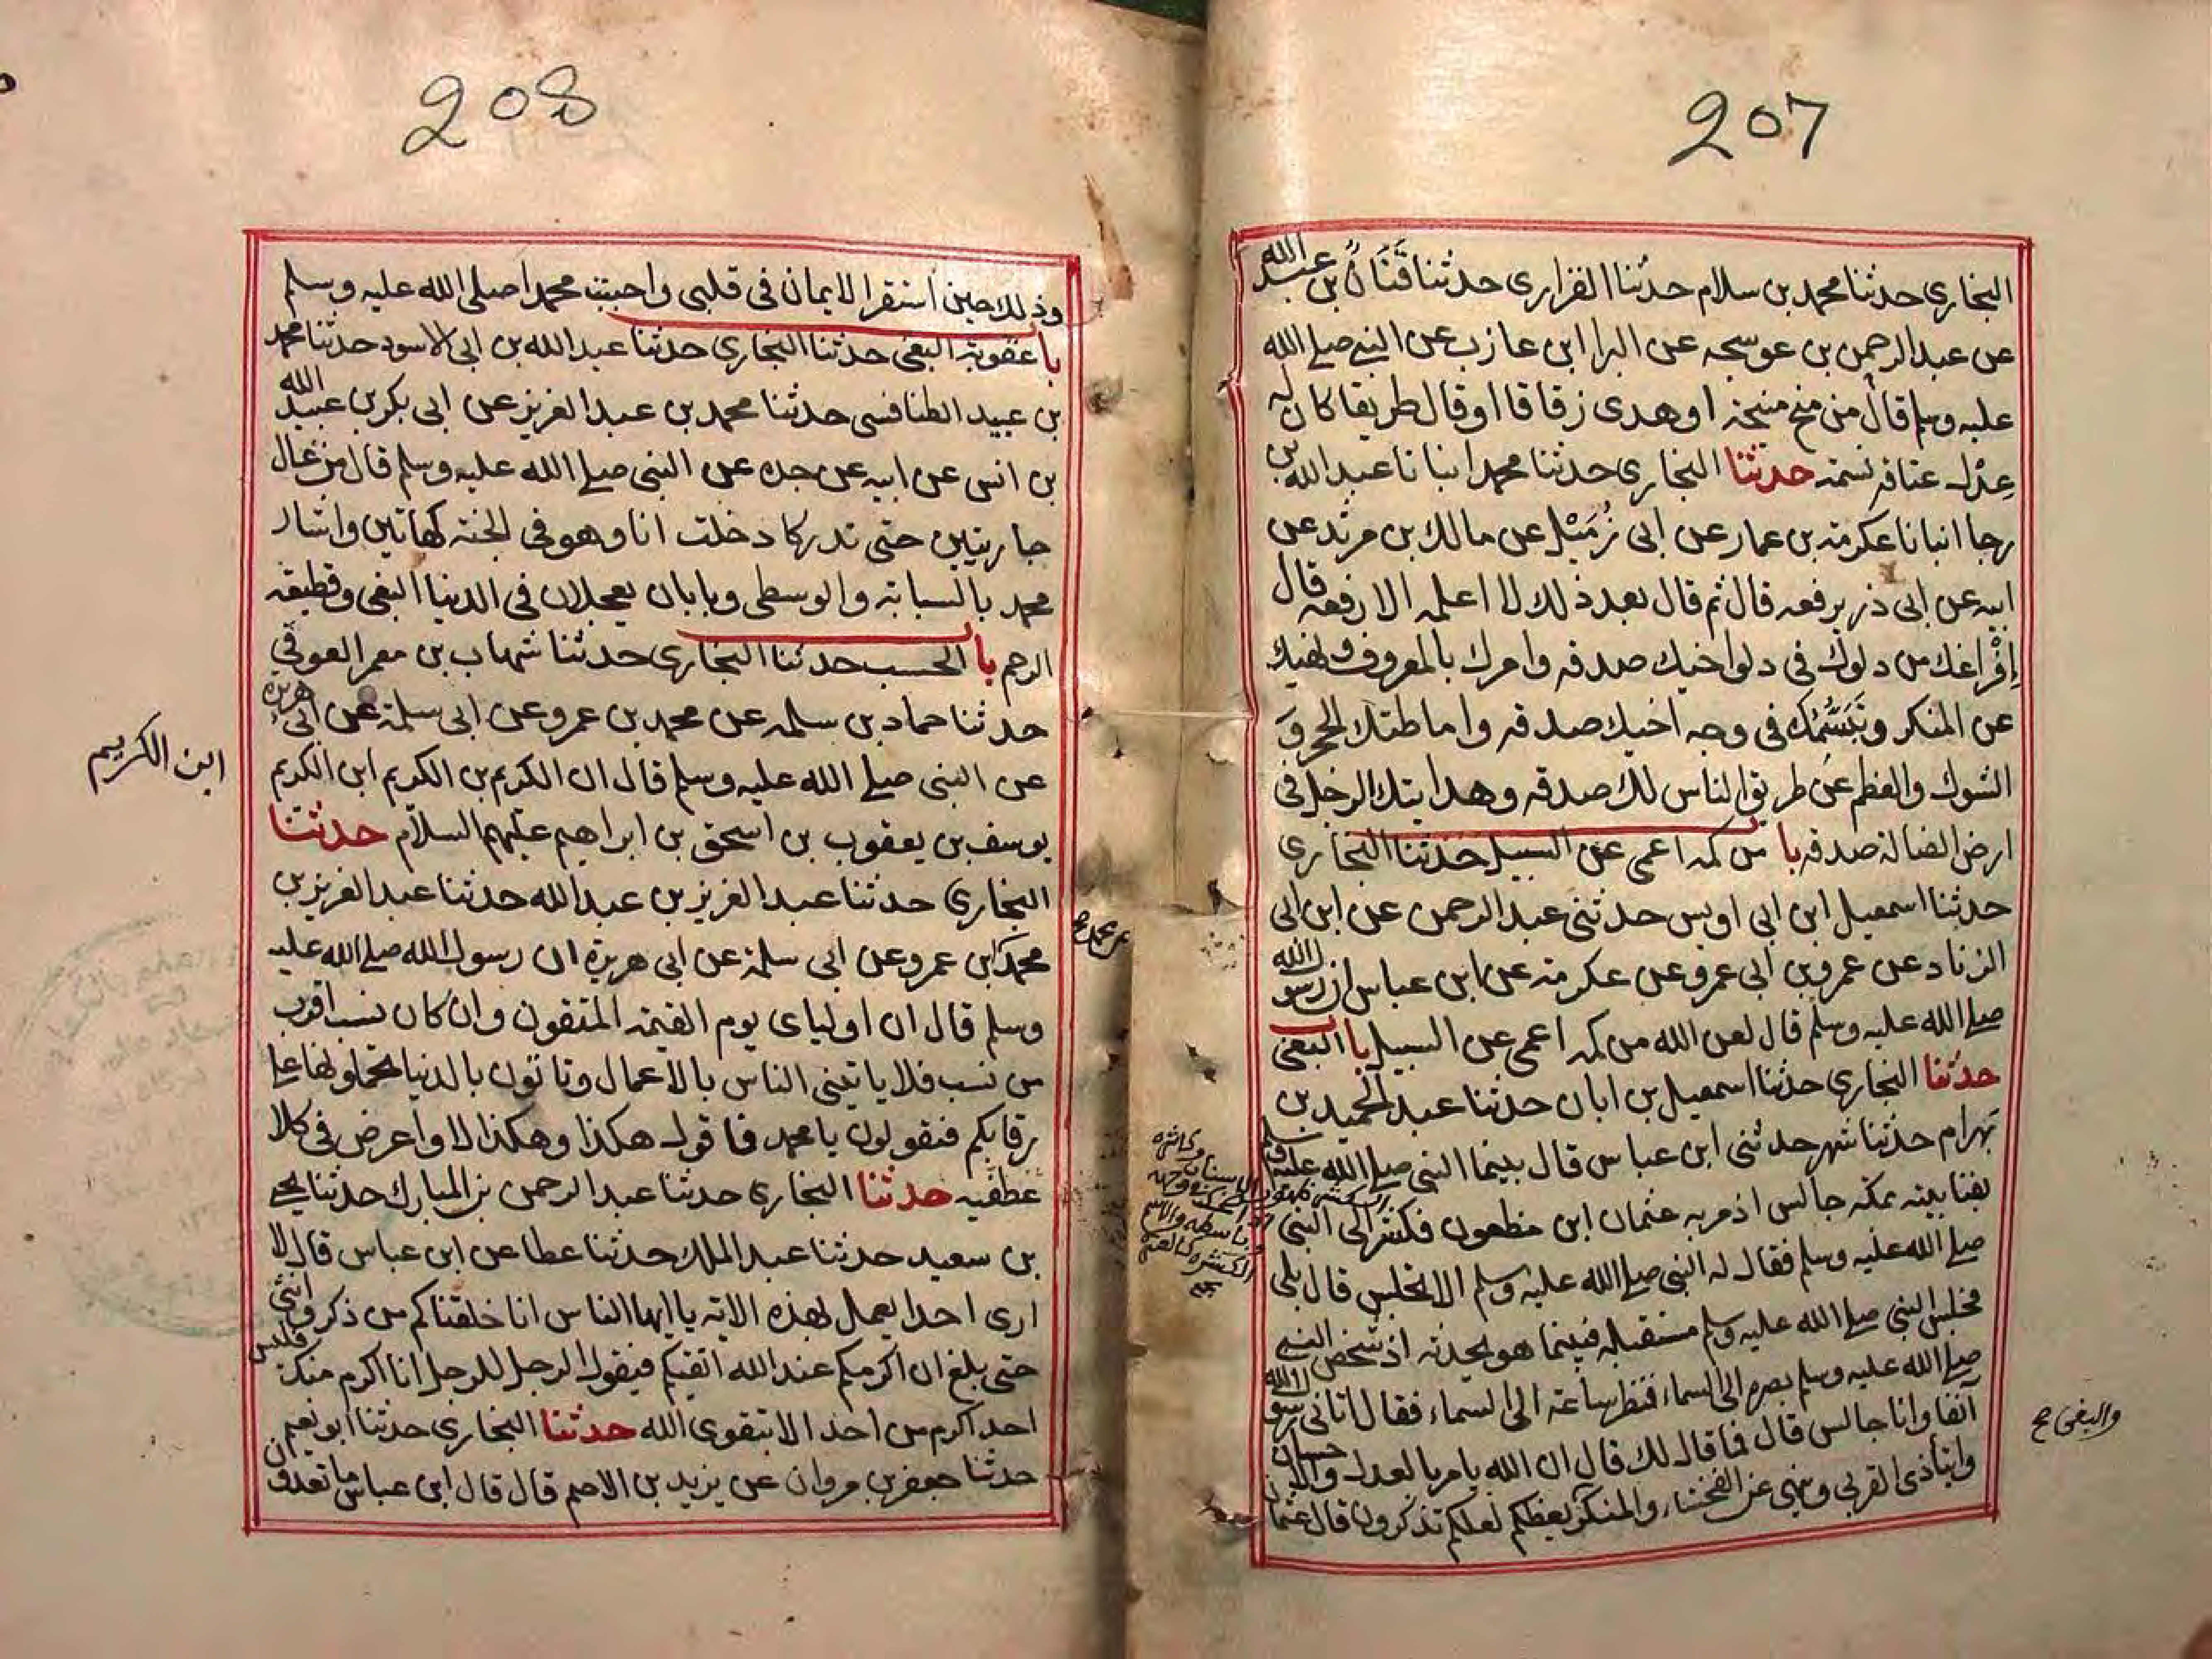 207
البخاري حدثنا محمد بن سلام حدثنا الفزاري حدثنا قنان بن عبد الله
عن عبد الرحمن بن عوسجه عن البرا ابن عازب عن النبي صلي الله
عليه وسلم قال من منح منيحة او هدى زقاقا او قال طريقا كان له
عدل عتاقه نسمة حدثنا البخاري حدثنا محمد انبانا عبد الله بن
رجا انبانا عكرمة بن عمار عن ابى زميل عن مالك بن مرثد عن
ابيه عن ابى ذر يرفعه قال ثم قال بعد ذلك لا اعلمه الا رفعه قال
إفراغك من دلوك في دلو اخيك صدقه وامرك بالمعروف ونهيك
عن المنكر وتبسمك في وجه اخيك صدقه واماطتك الحجر و
الشوك والعظم عن طريق الناس لك صدقه وهدايتك الرجل في
ارض الضالة صدقه با من كمه اعمى عن السبيل حدثنا البخاري
حدثنا اسمعيل ابن ابى اويس حدثنى عبد الرحمن عن ابن ابى
الزناد عن عمرو بن ابى عمرو عن عكرمة عن ابن عباس ان رسول الله
صلي الله عليه وسلم قال لعن الله من كمه اعمى عن السبيل با البغى
حدثنا البخاري حدثنا اسمعيل بن ابان حدثنا عبد الحميد بن
بهرام حدثنا شهر حدثنى ابن عباس قال بينما النبي صلي الله عليه وسلم
بفنا بيته بمكه جالس اذ مر به عثمان ابن مظعون فكشر الى النبي
صلي الله عليه وسلم فقال له النبي صلي الله عليه وسلم الا تجلس قال بلى
فجلس النبي صلي الله عليه وسلم مستقبله فبينما هو يحدثه اذ شخص النبي
صلي الله عليه وسلم بصره الى السماء فنظر ساعة الى السماء فقال اتانى رسول الله
آنفا وانا جالس قال فما قال لك قال ان الله يامر بالعدل والاحسان
وايتا ذى القربى وينهى عن الفحشاء والمنكر يعظكم لعلكم تذكرون قال عثمان
والبغى صح
208
وذلك حين استقر الايمان في قلبى واحببت محمدا صلي الله عليه وسلم
با عقوبة البغى حدثنا البخاري حدثنا عبد الله بن ابى الاسود حدثنا محمد
بن عبيد الطنافسى حدثنا محمد بن عبد العزيز عن ابى بكر بن عبيد الله
بن انس عن ابيه عن جده عن النبي صلي الله عليه وسلم قال من عال
جاريتين حتى تدركا دخلت انا وهو في الجنة كهاتين واشار
محمد بالسبابة والوسطى وبابان يعجلان في الدنيا البغى وقطيعة
الرحم با الحسب حدثنا البخاري حدثنا شهاب بن معمر العوقي
حدثنا حماد بن سلمه عن محمد بن عمرو عن ابى سلمة عن ابى هريرة
عن النبي صلي الله عليه وسلم قال ان الكريم بن الكريم ابن الكريم
ابن الكريم
يوسف بن يعقوب بن اسحق بن ابراهيم عليهم السلام حدثنا
البخاري حدثنا عبد العزيز بن عبد الله حدثنا عبد العزيز بن
محمد ابن عمرو عن ابى سلمة عن ابى هريرة ان رسول الله صلي الله عليه
عن محمد صح
وسلم قال ان اولياى يوم القيمة المتقون وان كان نسب اقرب
من نسب فلا ياتينى الناس بالاعمال وتاتون بالدنيا تحملونها على
رقابكم فتقولون يا محمد فاقول هكذا وهكذا لا واعرض في كلا
عطفيه حدثنا البخاري حدثنا عبد الرحمن بن المبارك حدثنا يحيى
بن سعيد حدثنا عبد الملك حدثنا عطا عن ابن عباس قال لا
ارى احدا يعمل بهذه الاية يا ايها الناس انا خلقناكم من ذكر وانثى
حتى بلغ ان اكرمكم عند الله اتقيكم فيقول الرجل للرجل انا اكرم منك فليس
احد اكرم من احد الا بتقوى الله حدثنا البخاري حدثنا ابو نعيم
حدثنا جعفر بن مروان عن يزيد بن الاصم قال قال ابن عباس ما تعدون